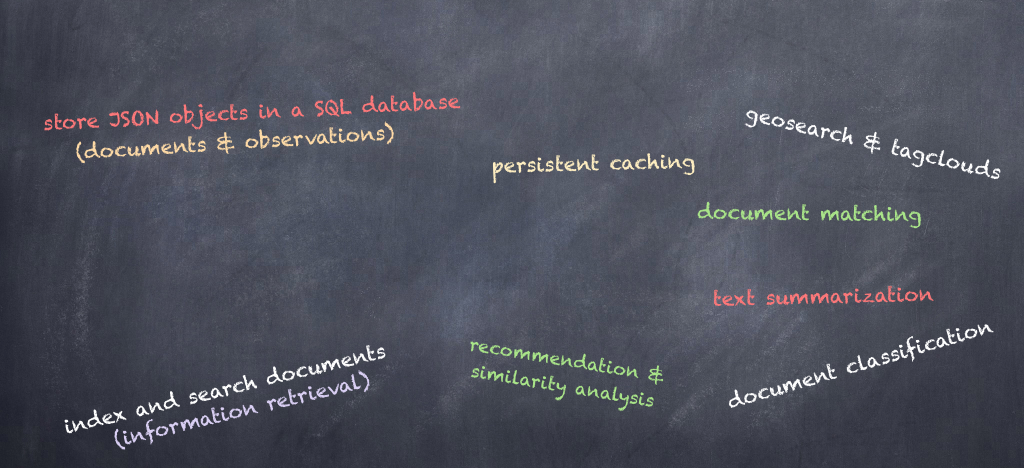 store JSON objects in a SQL database
(documents & observations)
persistent caching
geosearch & tagclouds
document matching
text summarization
index and search documents
(information retrieval)
recommendation &
similarity analysis
document classification